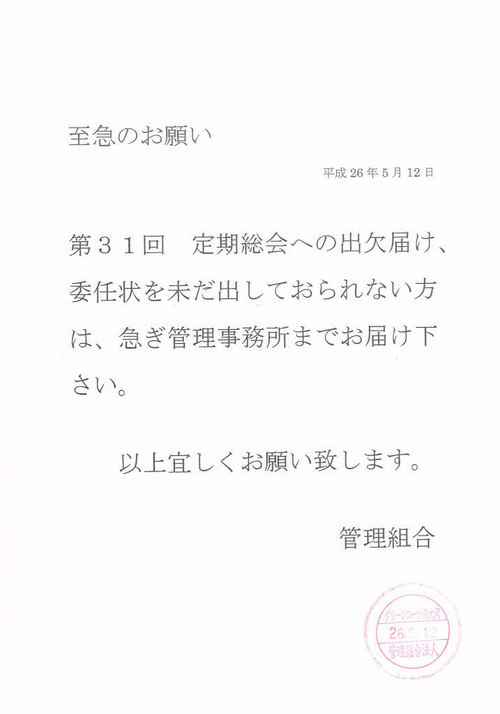 至急のお願い
平成26年5月12日
第31回　定期総会への出欠届け、
委任状を未だ出しておられない方
は、急ぎ管理事務所までお届け下
さい。
以上宜しくお願い致します。
管理組合
26.5.12
管理組合法人